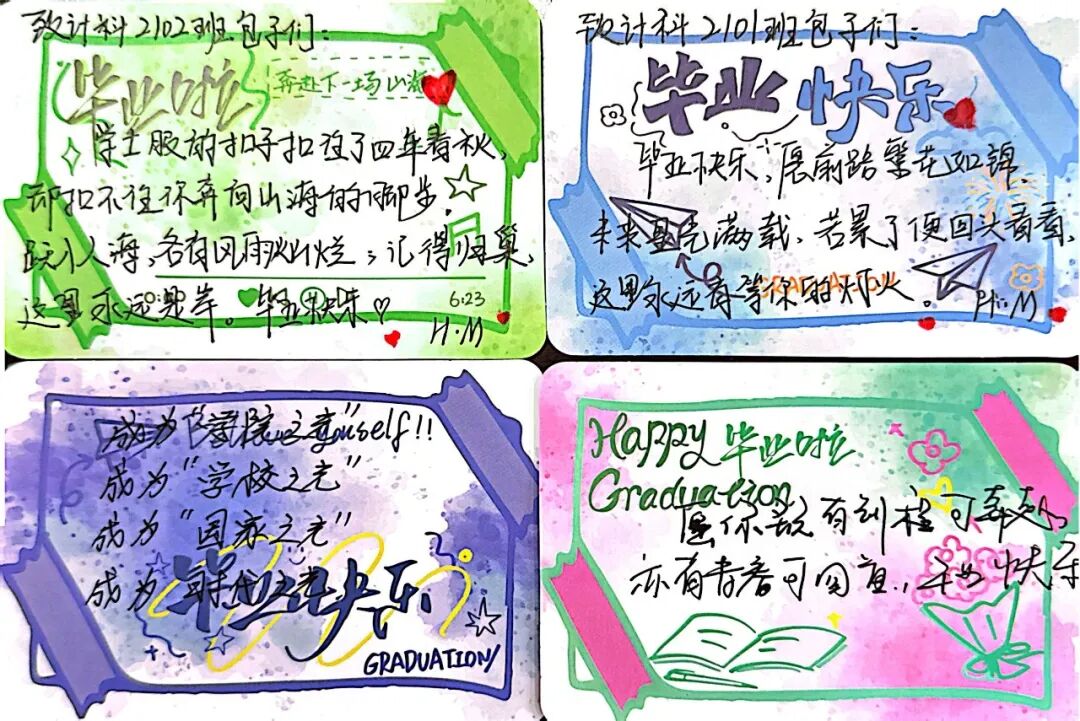 致计科2102班包子们：
毕业啦
奔赴下一场山海
学士服的扣子扣住了四年春秋，
却扣不住你奔向山海的脚步，
跃入人海，各有风雨灿烂；记得归巢，
这里永远是岸。毕业快乐♡
6.23
H·M
致计科2101班包子们：
毕业快乐
毕业快乐，愿前路繁花如锦，
未来星光满载，若累了便回头看看，
GRADUATION
这里永远有等你的灯火。
H·M
成为"学院之光"
yourself!!
成为"学校之光"
成为"国家之光"
成为 时代之光
毕业快乐
GRADUATION
Happy 毕业啦
Graduation
愿你既有前程可奔赴，
亦有青春可回首，毕业快乐